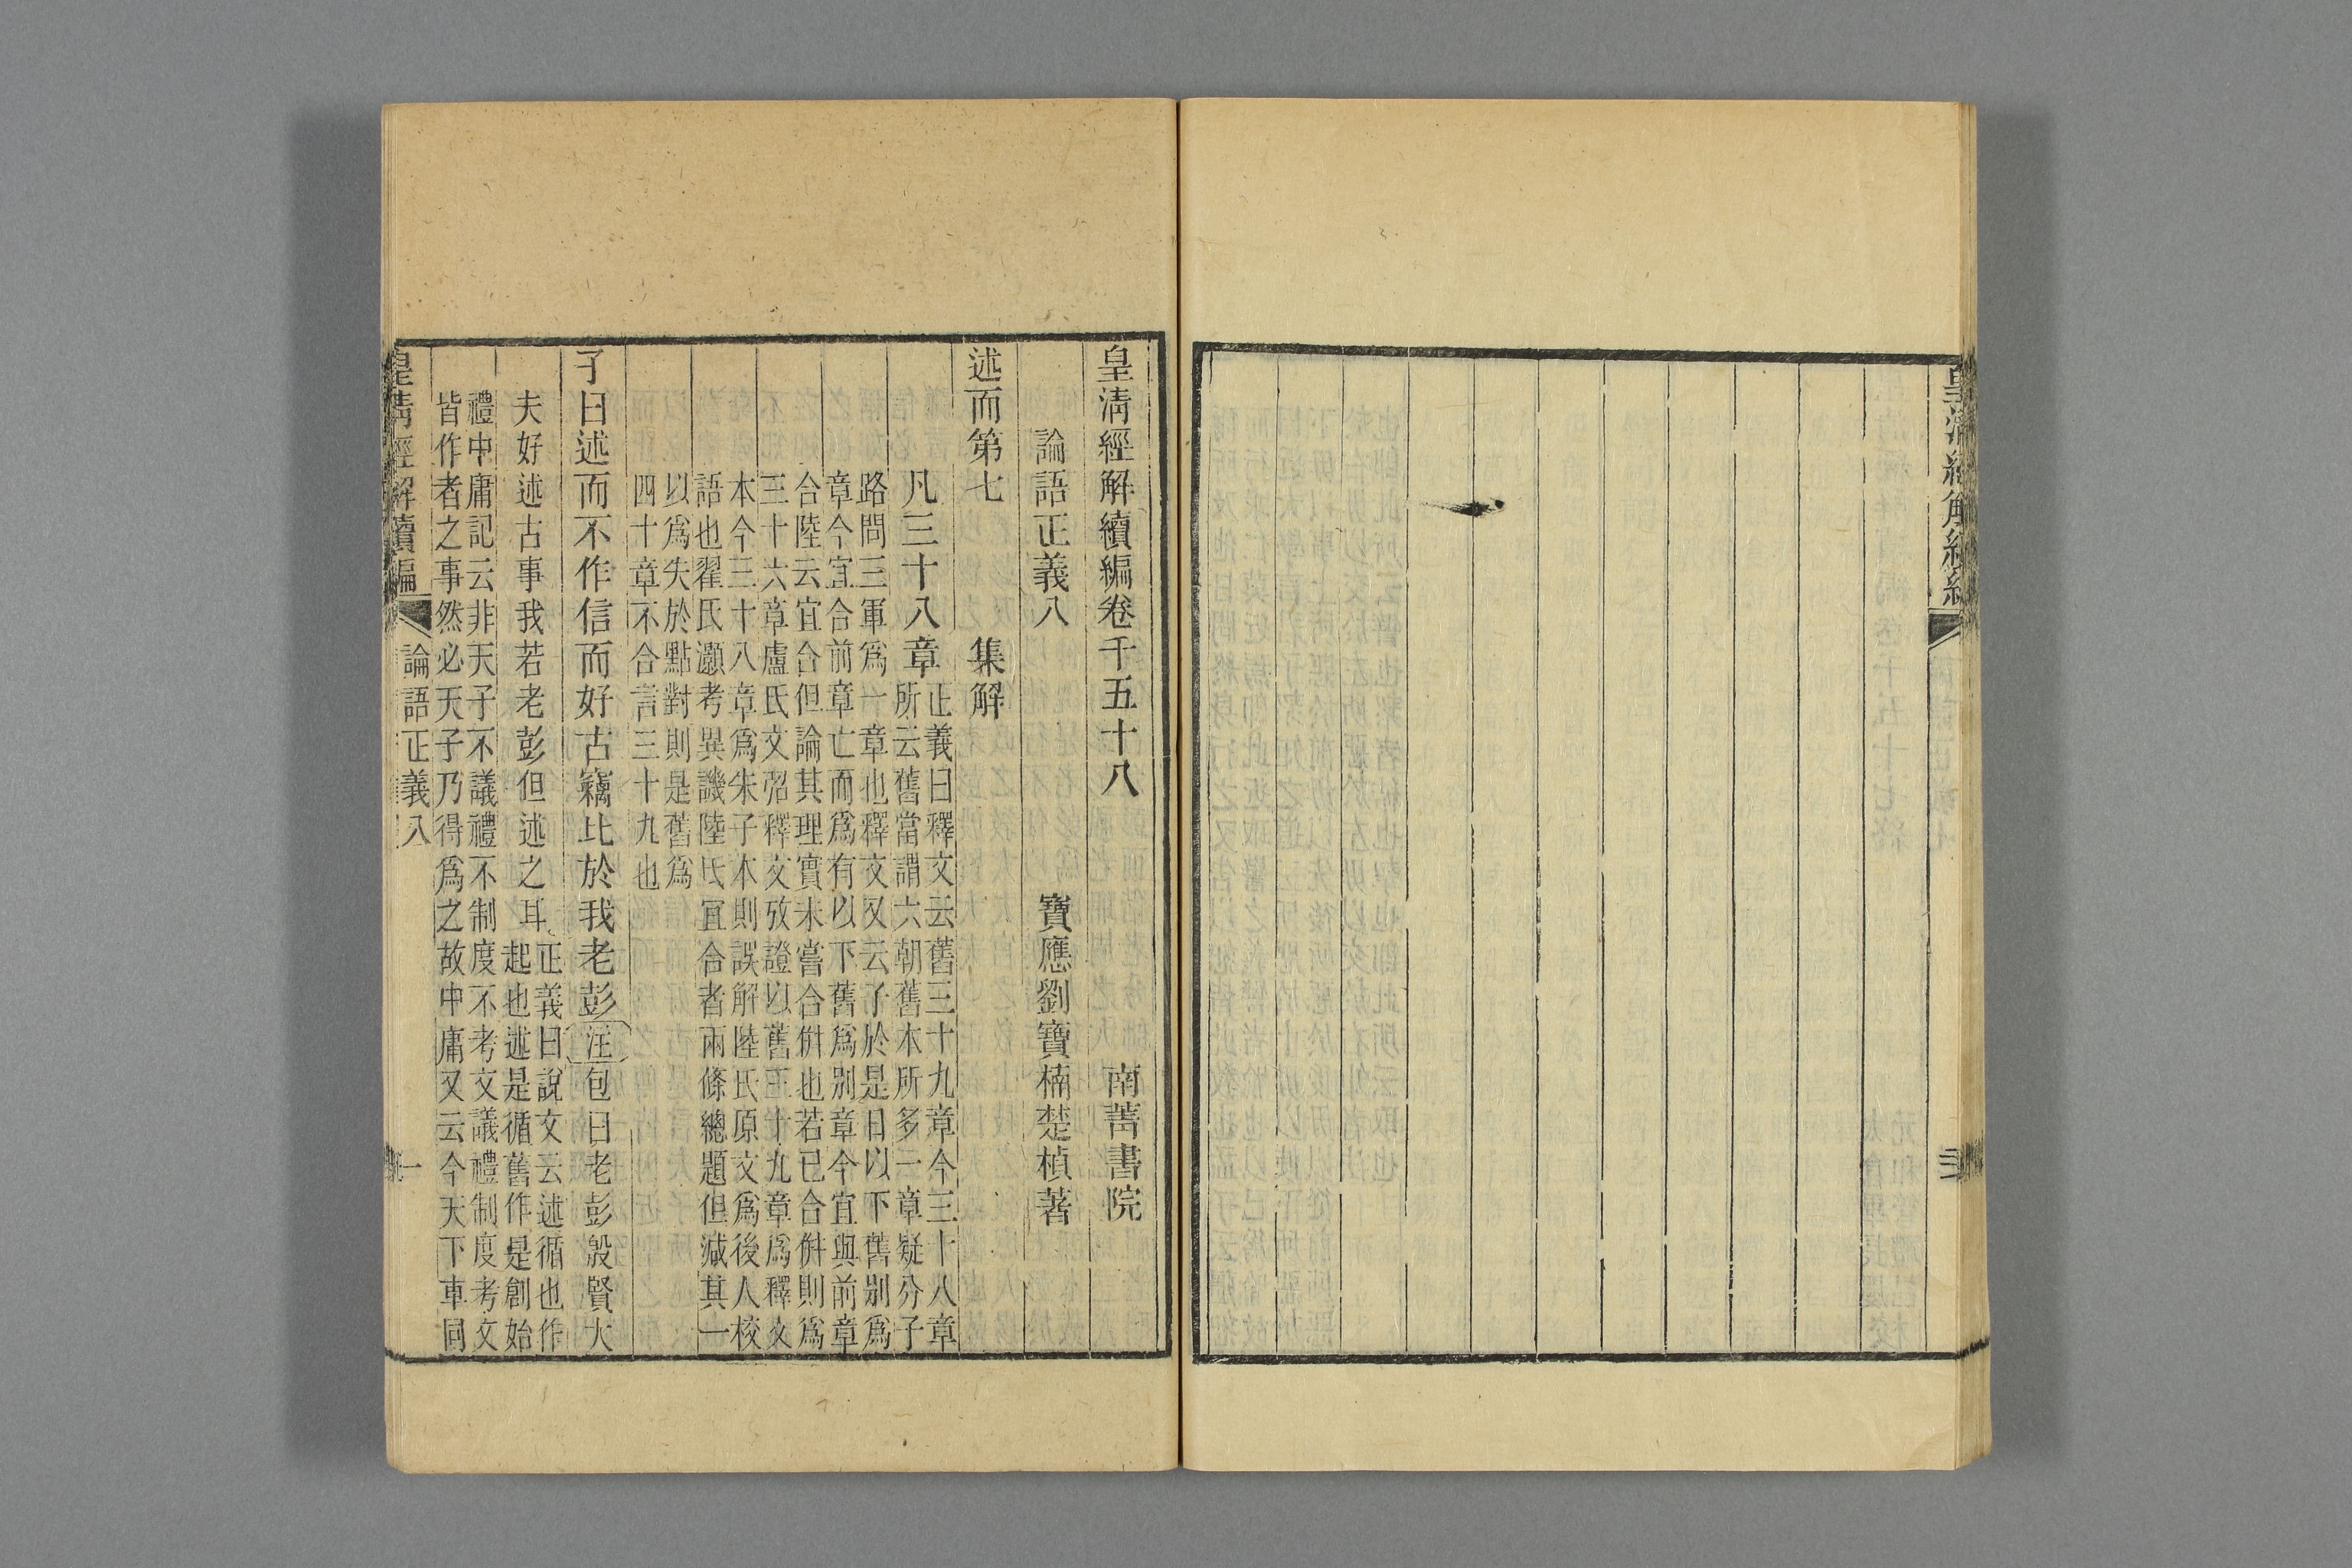 皇清經解續編卷千五十八　南菁書院
論語正義八　寶應劉寶楠楚楨著
述而第七　集解
凡三十八章
正義曰釋文云舊三十九章今三十八章
所云舊當謂六朝舊本所多一章疑分子
路問三軍爲一章也釋文又云子於是日以下舊別爲
章今宜合前章亡而爲有以下舊爲別章今宜與前章
合陸云宜合但論其理實未嘗合倂也若已合倂則爲
三十六章盧氏文弨釋文攷證以舊三十九章爲釋文
本今三十八章爲朱子本則誤解陸氏原文爲後人校
語也翟氏灝考異譏陸氏宜合者兩條總題但減其一
以爲失於點對則是舊爲
四十章不合言三十九也
子曰述而不作信而好古竊比於我老彭注包曰老彭殷賢大
夫好述古事我若老彭但述之耳
正義曰說文云述循也作
起也述是循舊作是創始
禮中庸記云非天子不議禮不制度不考文議禮制度考文
皆作者之事然必天子乃得爲之故中庸又云今天下車同
皇清經解續編　論語正義八　一